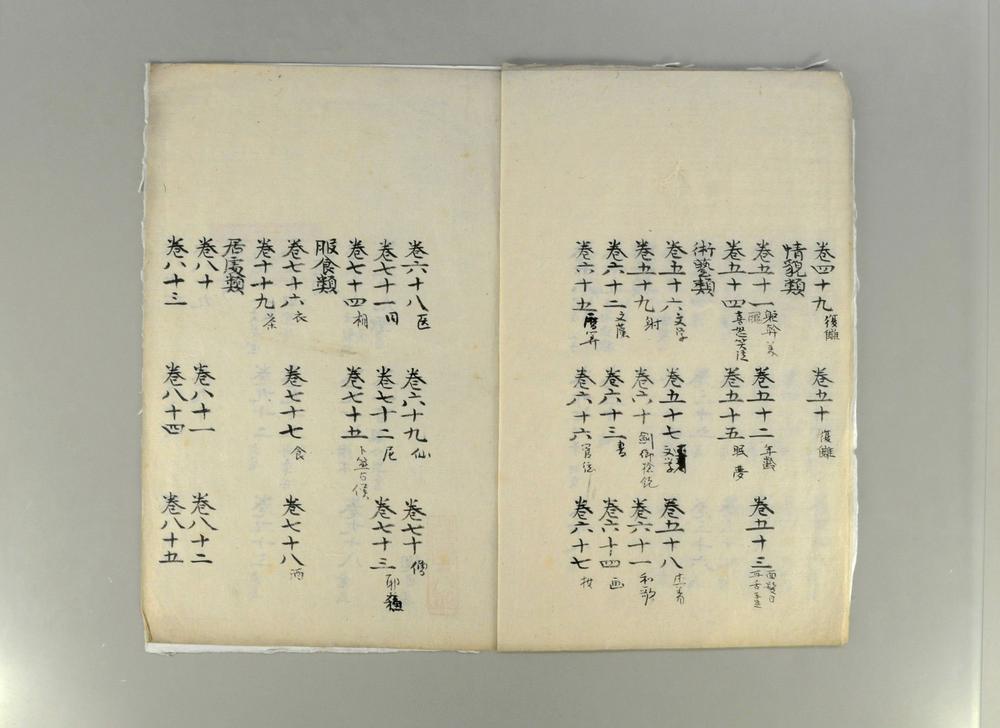 巻四十九 復讎 巻五十 復讎
情貌類
巻五十一 躯幹 美 醜 巻五十二 年齢 巻五十三 面
巻五十四 喜怒笑泣 巻五十五 眠 夢
術藝類
巻五十六 文学 巻五十七 文学 巻五十八
巻五十九 射 巻六十 剣 巻六十一 和歌
巻六十二 巻六十三 書 巻六十四 画
巻六十五 暦算 巻六十六 巻六十七
巻六十八 医 巻六十九 仙 巻七十 僧
巻七十一 同 巻七十二 尼 巻七十三 耶
巻七十四 相 巻七十五 卜筮占候
服食類
巻七十六 衣 巻七十七 食 巻七十八 酒
巻十十九 茶
居處類
巻八十 巻八十一 巻八十二
巻八十三 巻八十四 巻八十五